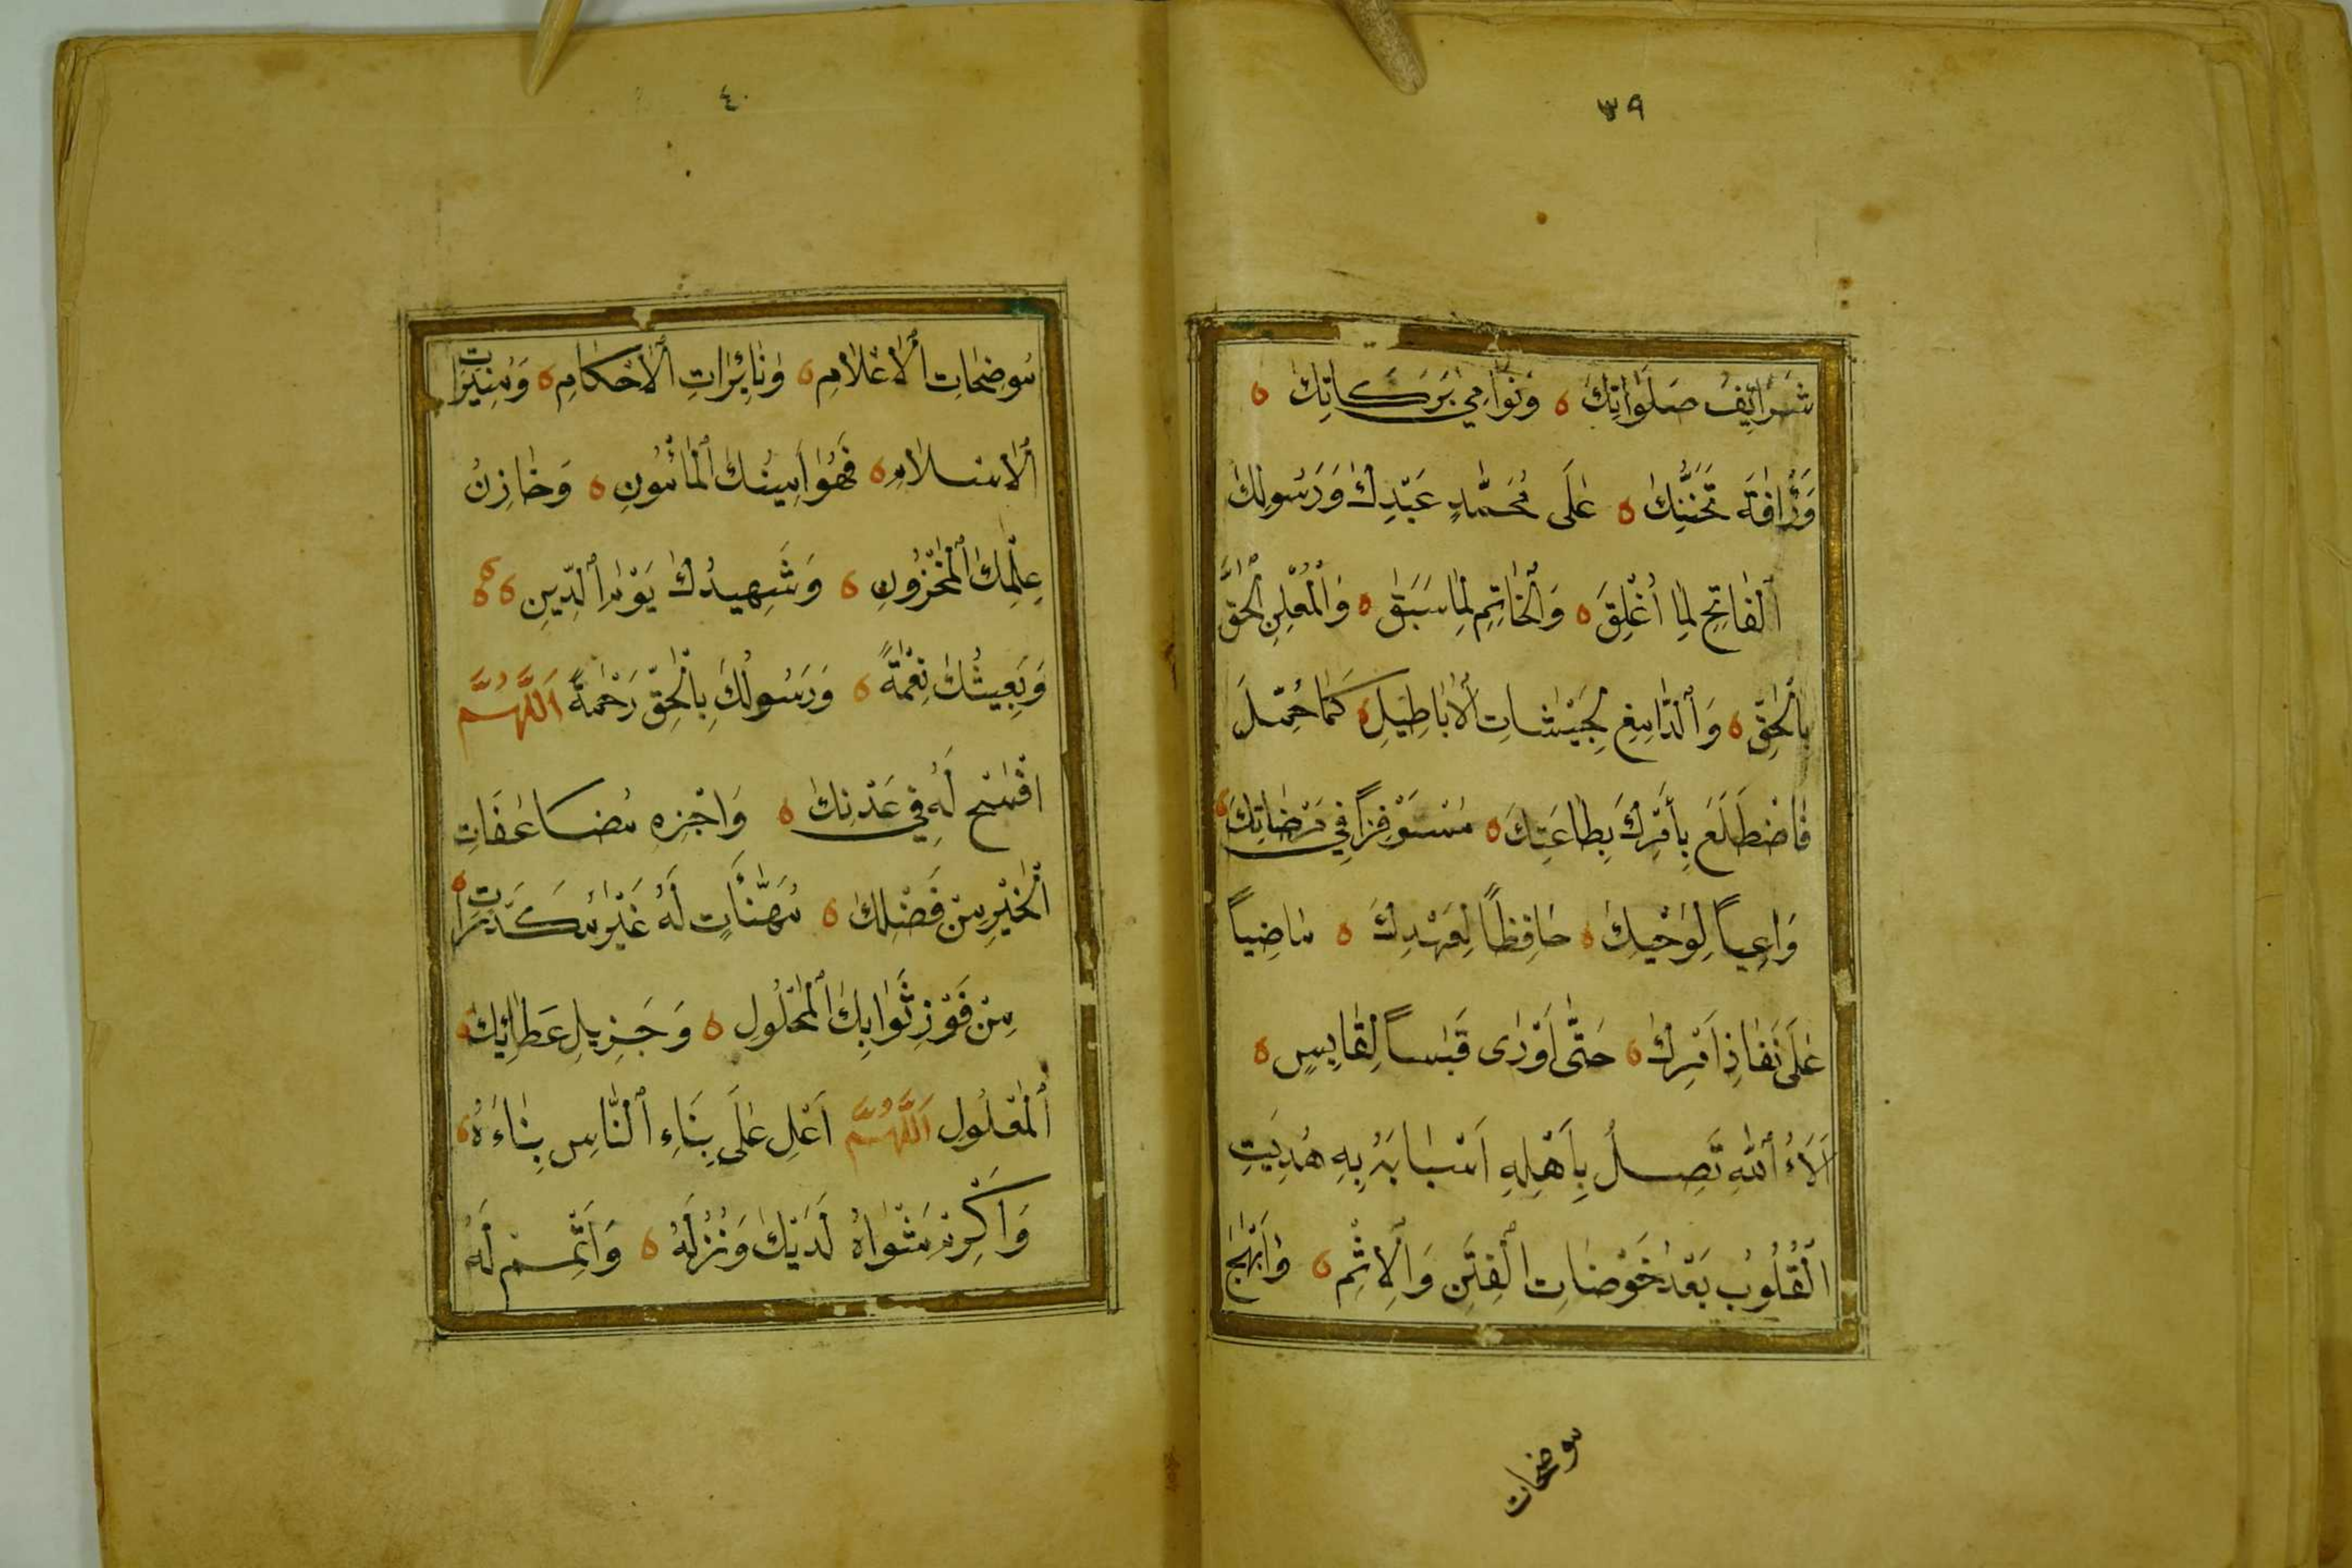 ٣٩
شَرَائِفَ صَلَوَاتِكَ ٥ وَنَوَامِي بَرَكَاتِكَ ٥
وَرَأْفَةَ تَحَنُّنِكَ ٥ عَلَى مُحَمَّدٍ عَبْدِكَ وَرَسُولِكَ
ٱلْفَاتِحِ لِمَا أُغْلِقَ ٥ وَٱلْخَاتِمِ لِمَا سَبَقَ ٥ وَٱلْمُعْلِنِ ٱلْحَقَّ
بِٱلْحَقِّ ٥ وَٱلدَّامِغِ لِجَيْشَاتِ ٱلْأَبَاطِيلِ ٥ كَمَا حُمِّلَ
فَاضْطَلَعَ بِأَمْرِكَ بِطَاعَتِكَ ٥ مُسْتَوْفِزاً فِي مَرْضَاتِكَ ٥
وَاعِياً لِوَحْيِكَ ٥ حَافِظاً لِعَهْدِكَ ٥ مَاضِياً
عَلَى نَفَاذِ أَمْرِكَ ٥ حَتَّى أَوْرَى قَبَساً لِقَابِسٍ ٥
آلَاءُ ٱللَّهِ تَصِلُ بِأَهْلِهِ أَسْبَابَهُ بِهِ هُدِيَتِ
ٱلْقُلُوبُ بَعْدَ خَوْضَاتِ ٱلْفِتَنِ وَٱلْإِثْمِ ٥ وَأَبْهَجَ
موضحات
٤٠
مُوضِحَاتِ ٱلْأَعْلَامِ ٥ وَنَائِرَاتِ ٱلْأَحْكَامِ ٥ وَمُنِيرَاتِ
ٱلْإِسْلَامِ ٥ فَهُوَ أَمِينُكَ ٱلْمَأْمُونُ ٥ وَخَازِنُ
عِلْمِكَ ٱلْمَخْزُونِ ٥ وَشَهِيدُكَ يَوْمَ ٱلدِّينِ ٥ ٥ ٥
وَبَعِيثُكَ نِعْمَةً ٥ وَرَسُولُكَ بِٱلْحَقِّ رَحْمَةً ٱللَّهُمَّ
افْسَحْ لَهُ فِي عَدْنِكَ ٥ وَاجْزِهِ مُضَاعَفَاتِ
ٱلْخَيْرِ مِنْ فَضْلِكَ ٥ مُهَنَّئَاتٍ لَهُ غَيْرَ مُكَدَّرَاتٍ ٥
مِنْ فَوْزِ ثَوَابِكَ ٱلْمَحْلُولِ ٥ وَجَزِيلِ عَطَائِكَ ٥
ٱلْمَعْلُولِ ٱللَّهُمَّ أَعْلِ عَلَى بِنَاءِ ٱلنَّاسِ بِنَاءَهُ ٥
وَأَكْرِمْ مَثْوَاهُ لَدَيْكَ وَنُزُلَهُ ٥ وَأَتْمِمْ لَهُ